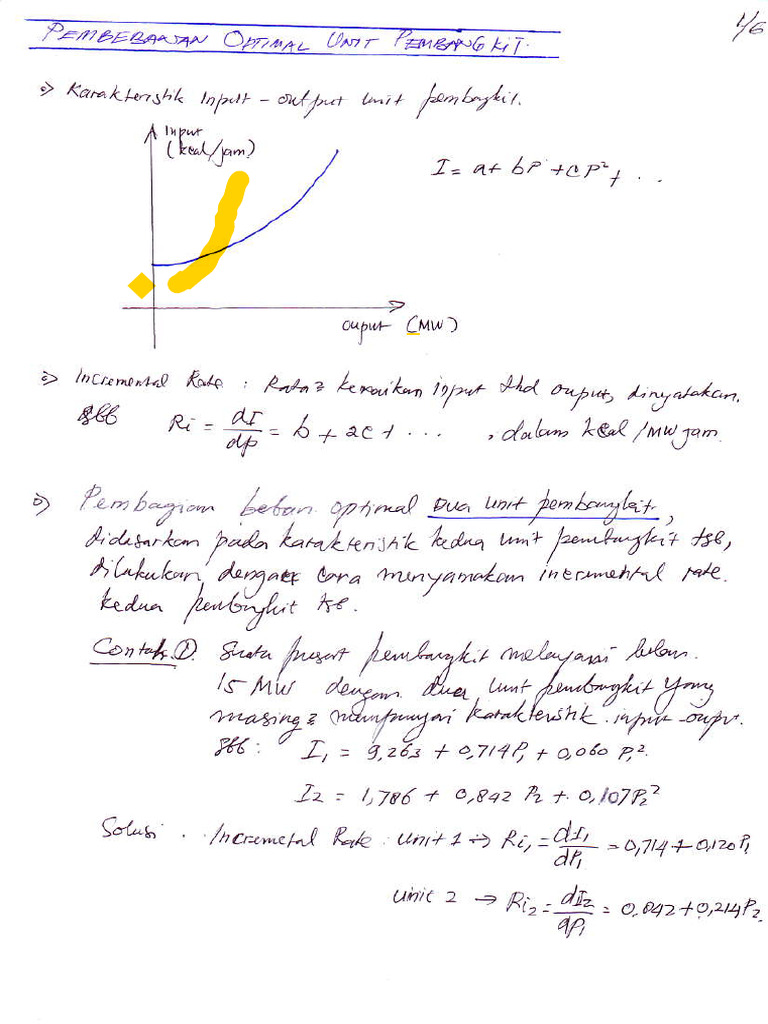 1/6
PEMBEBANAN OPTIMAL UNIT PEMBANGKIT.
Karakteristik Input - output unit pembagkit.
Input
(kcal/jam)
I = a + bP + cP² + ...
Ouput (MW)
Incremental Rate : Rata2 kenaikan input thd ouput, dinyatakan.
sbb Ri = dI/dp = b + 2c + ... , dalam kcal/MWjam.
Pembagian beban optimal DUA Unit pembangkit,
didasarkan pada karakteristik kedua unit pembangkit tsb,
dilakukan dengan cara menyamakan incremental rate.
kedua pembngkit tsb.
Contoh ①. Suatu pusat pembangkit melayani beban.
15 MW dengan dua Unit pembngkit yang
masing2 mempunyai karakteristik input-oupt.
sbb : I₁ = 9,263 + 0,714P₁ + 0,060 P₁².
I2 = 1,786 + 0,842 P2 + 0,107P2²
Solusi . Incremetal Rate : Unit 1 → Ri₁ = dI₁/dP₁ = 0,714 + 0,120P₁
Unit 2 → Ri2 = dI2/dP₁ = 0.842 + 0,214P2.